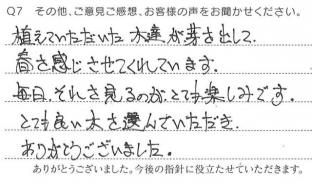 Q7 その他、ご意見ご感想、お客様の声をお聞かせください。
植えていただいた木達が芽を出して、
春を感じさせてくれています。
毎日、それを見るのがとても楽しみです。
とても良い木を選んでいただき
ありがとうございました。
ありがとうございました。今後の指針に役立たせていただきます。